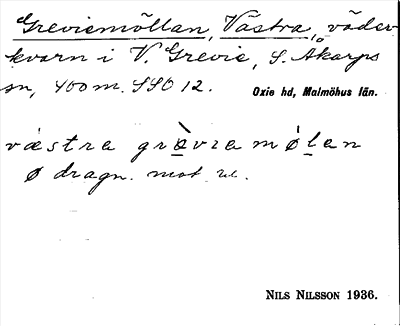 Greviemöllan, Västra, väder-
kvarn i V. Grevie, S. Åkarps
sn, 400 m. SSO 12.
Oxie hd, Malmöhus län.
västra grævıamølan
ø dragn. mot u.
NILS NILSSON 1936.